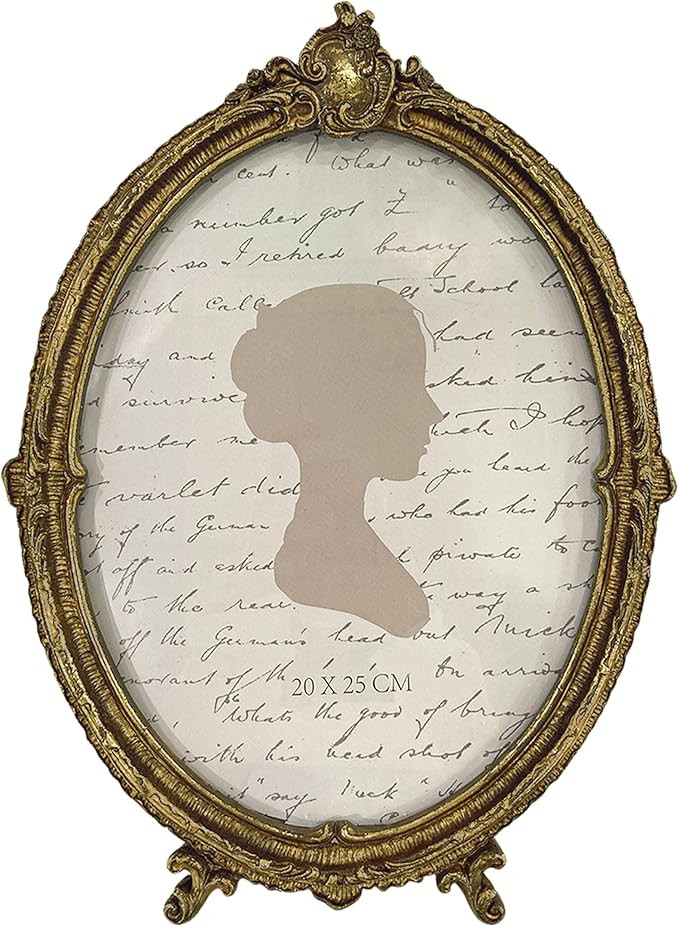 cent. What was
a number got Z to
so I retired badly wo
Smith Calle of School ha
day and had seen
d survive asked him
emember me with I hop
varlet did you heard the
ry of the German who had his foo
t off and asked private to
to the rear. to way a sh
off the German's head but Mick
ignorant of the An arriva
20 X 25 CM
Whats the good of bring
with his head shot of
it" say Mick"